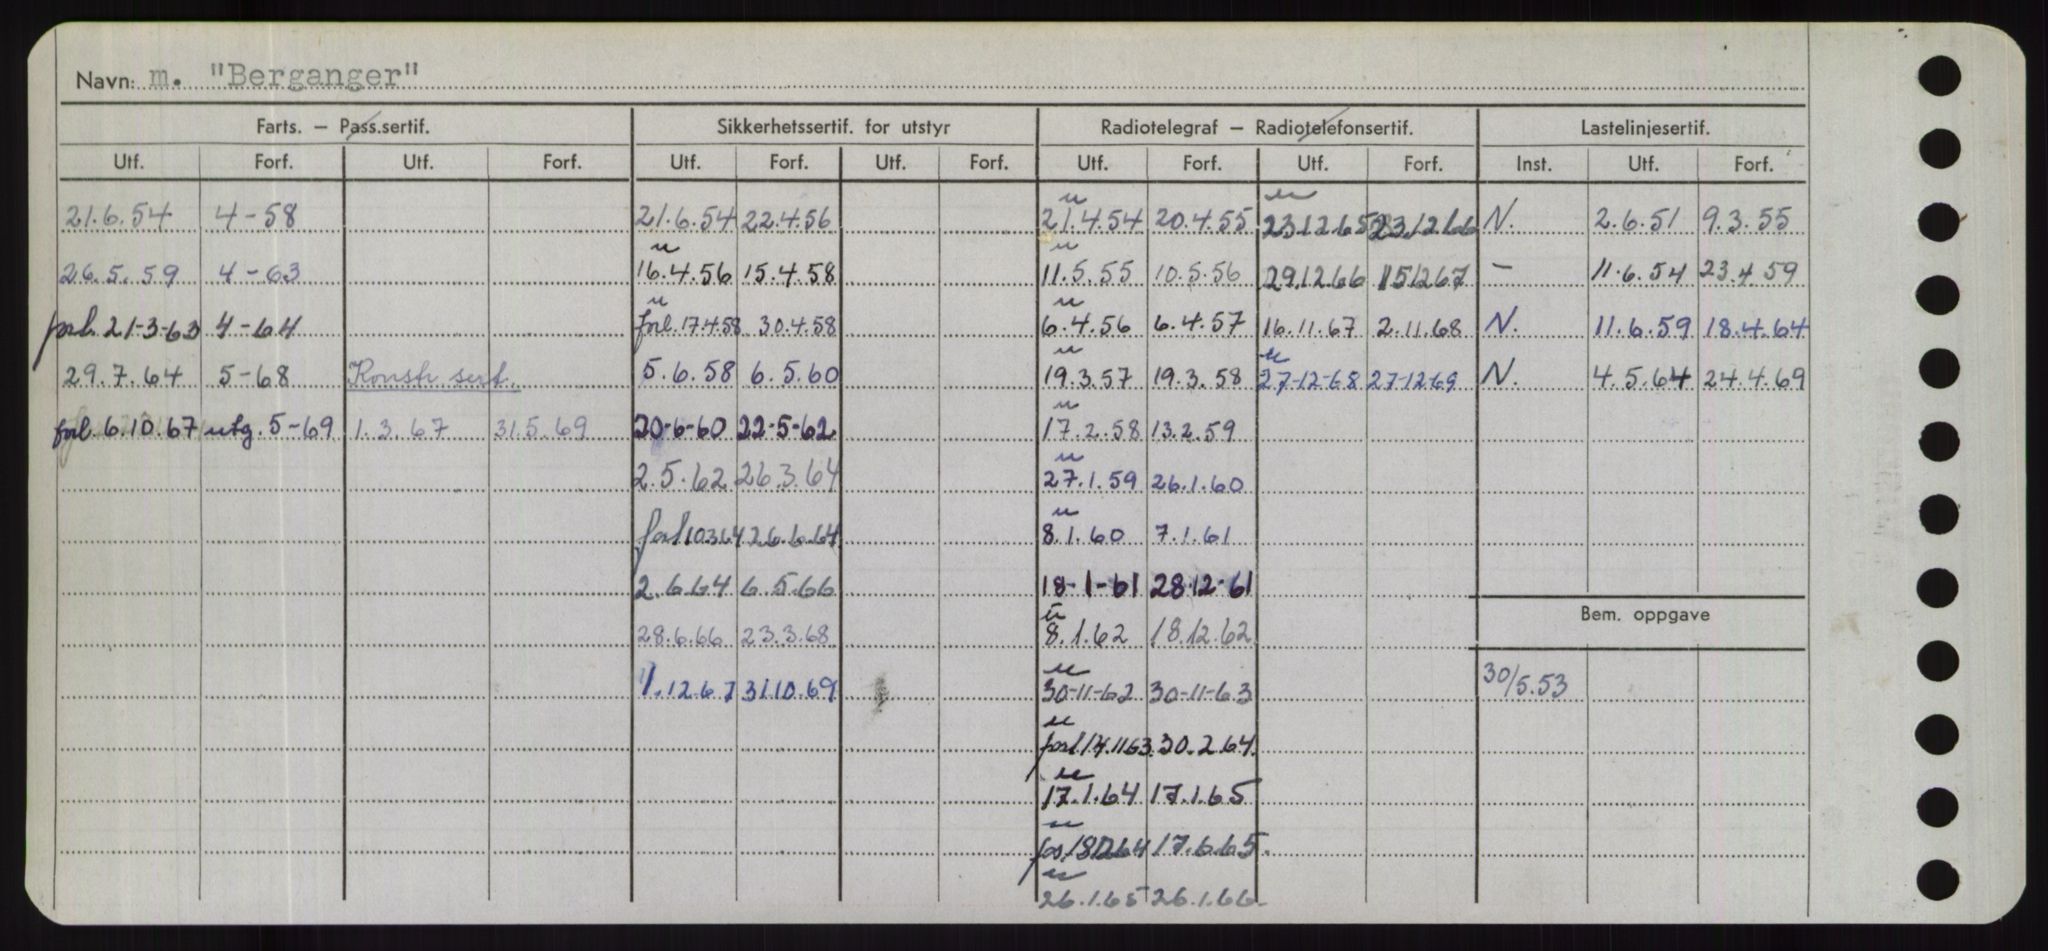 Navn: m. "Berganger"
Farts. – Pass.sertif. Sikkerhetssertif. for utstyr Radiotelegraf – Radiotelefonsertif. Lastelinjesertif.
Utf. Forf. Utf. Forf. Utf. Forf. Utf. Forf. Utf. Forf. Utf. Forf. Inst. Utf. Forf.
u u
21.6.54 4-58 21.6.54 22.4.56 21.4.54 20.4.55 23.12.65 23.12.66 N. 2.6.51 9.3.55
u u
26.5.59 4-63 16.4.56 15.4.58 11.5.55 10.5.56 29.12.66 15.12.67 – 11.6.54 23.4.59
u u
forl. 21-3-63 4-64 forl. 17.4.58 30.4.58 6.4.56 6.4.57 16.11.67 2.11.68 N. 11.6.59 18.4.64
u u
29.7.64 5-68 Konstr. sert. 5.6.58 6.5.60 19.3.57 19.3.58 27-12-68 27-12-69 N. 4.5.64 24.4.69
u
forl. 6.10.67 utg. 5-69 1.3.67 31.5.69 20-6-60 22-5-62 17.2.58 13.2.59
u
2.5.62 26.3.64 27.1.59 26.1.60
u
forl 10364 26.6.64 8.1.60 7.1.61
2.6.64 6.5.66 18-1-61 28-12-61
u
28.6.66 23.3.68 8.1.62 18.12.62
Bem. oppgave
u
1.12.67 31.10.69 30-11-62 30-11-63 30/5.53
u
forl 14.1163 30.2.64
u
17.1.64 17.1.65
u
17.6.65.
u
26.1.65 26.1.66